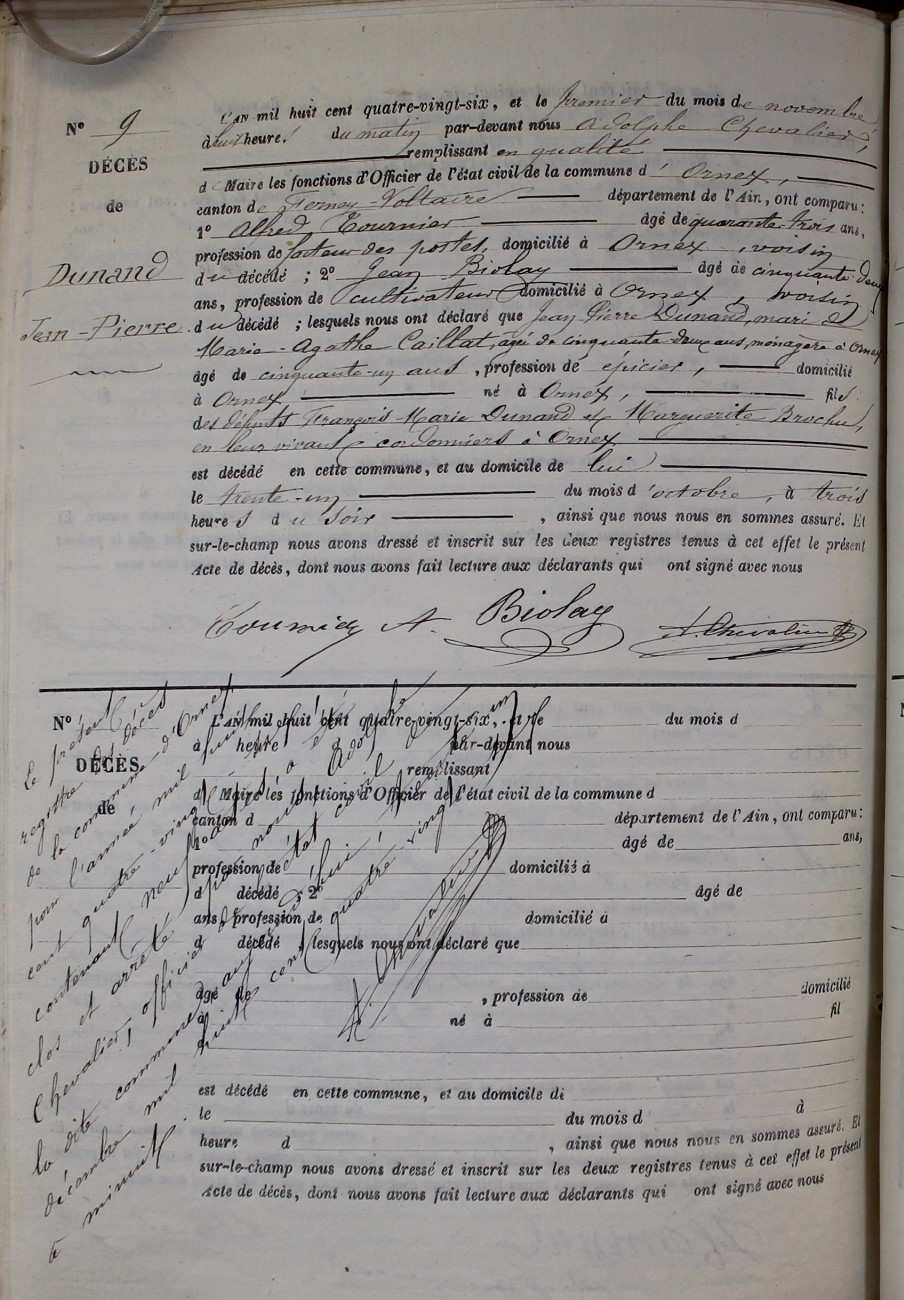 N° 9
DÉCÈS
de
Dunand
Jean-Pierre
L'AN mil huit cent quatre-vingt-six, et le premier du mois de novembre
à huit heures du matin par-devant nous Adolphe Chevalier,
remplissant en qualité
de Maire les fonctions d'Officier de l'état civil de la commune d'Ornex,
canton de Ferney-Voltaire département de l'Ain, ont comparu:
1° Alfred Tournier agé de quarante-trois ans,
profession de facteur des postes, domicilié à Ornex, voisin
du décédé ; 2° Jean Biolay agé de cinquante-deux
ans, profession de cultivateur domicilié à Ornex, voisin
du décédé ; lesquels nous ont déclaré que Jean Pierre Dunand, mari de
Marie-Agathe Caillat, agée de cinquante-deux ans, ménagère à Ornex
âgé de cinquante-un ans, profession de épicier, domicilié
à Ornex né à Ornex, fils
des défunts François-Marie Dunand et Marguerite Brochut,
en leur vivant cordonniers à Ornex
est décédé en cette commune, et au domicile de lui
le trente-un du mois d'octobre, à trois
heures du soir , ainsi que nous nous en sommes assuré. Et
sur-le-champ nous avons dressé et inscrit sur les deux registres tenus à cet effet le présent
Acte de décès, dont nous avons fait lecture aux déclarants qui ont signé avec nous
Tournier A. Biolay A. Chevalier
N°
DÉCÈS
de
L'AN mil huit cent quatre-vingt-six, et le du mois d
à heure par-devant nous
remplissant
d Maire les fonctions d'Officier de l'état civil de la commune d
canton d département de l'Ain, ont comparu:
1° agé de ans,
profession de domicilié à
d décédé ; 2° agé de
ans, profession de domicilié à
d décédé ; lesquels nous ont déclaré que
âgé de , profession de domicilié
à né à fil
est décédé en cette commune, et au domicile de
le du mois d à
heure d , ainsi que nous nous en sommes assuré. Et
sur-le-champ nous avons dressé et inscrit sur les deux registres tenus à cet effet le présent
Acte de décès, dont nous avons fait lecture aux déclarants qui ont signé avec nous
Le présent
registre des décès
de la commune d'Ornex
pour l'année mil huit
cent quatre-vingt-six
contenant neuf actes a été
clos et arrêté par nous Adolphe
Chevalier, officier de l'état civil de
la dite commune, aujourd'hui, trente un
décembre mil huit cent quatre vingt
à minuit.
A. Chevalier